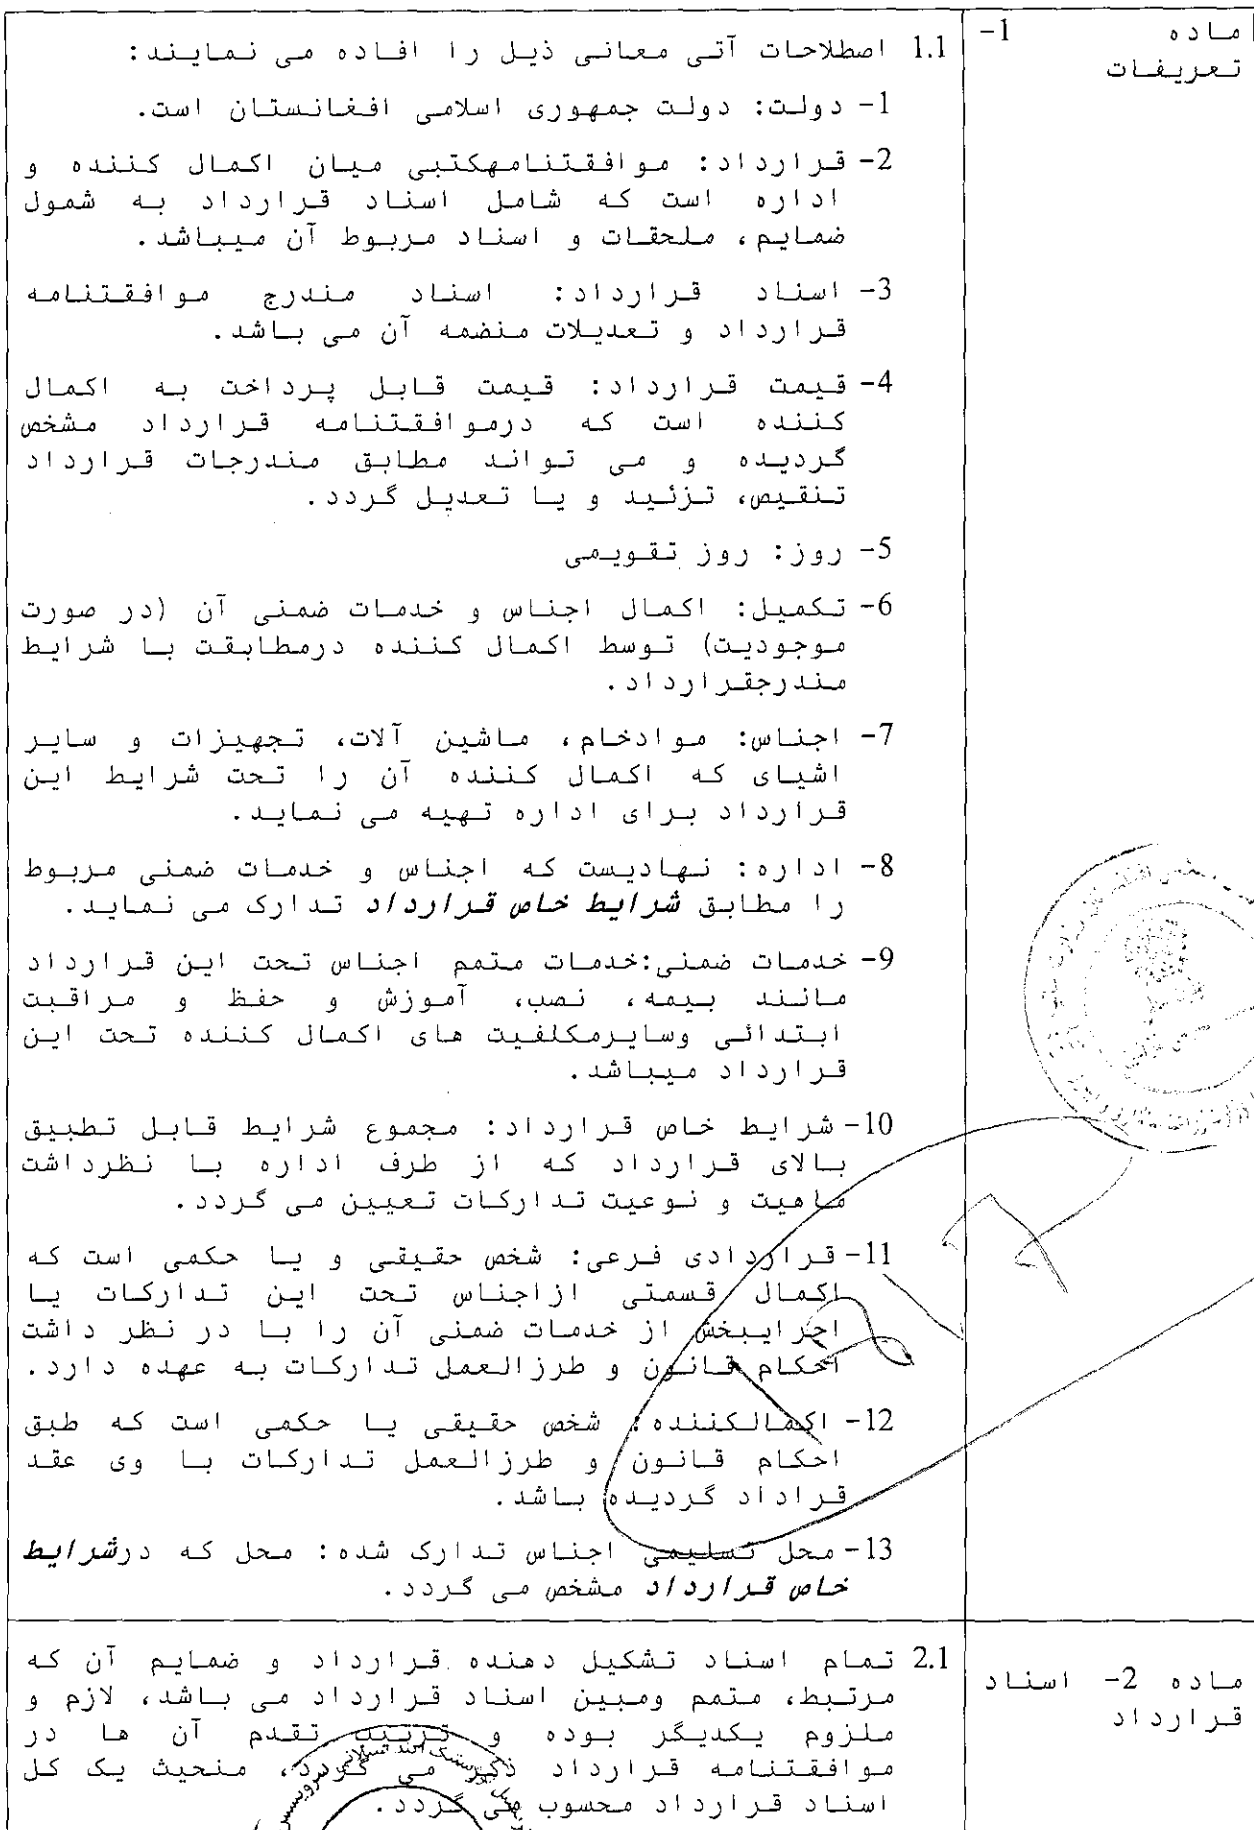 ماده 1-
تعریفات
1.1 اصطلاحات آتی معانی ذیل را افاده می نمایند:
1- دولت: دولت جمهوری اسلامی افغانستان است.
2- قرارداد: موافقتنامهکتبی میان اکمال کننده و
اداره است که شامل اسناد قرارداد به شمول
ضمایم، ملحقات و اسناد مربوط آن میباشد.
3- اسناد قرارداد: اسناد مندرج موافقتنامه
قرارداد و تعدیلات منضمه آن می باشد.
4- قیمت قرارداد: قیمت قابل پرداخت به اکمال
کننده است که درموافقتنامه قرارداد مشخص
گردیده و می تواند مطابق مندرجات قرارداد
تنقیص، تزئید و یا تعدیل گردد.
5- روز: روز تقویمی
6- تکمیل: اکمال اجناس و خدمات ضمنی آن (در صورت
موجودیت) توسط اکمال کننده درمطابقت با شرایط
مندرجقرارداد.
7- اجناس: موادخام، ماشین آلات، تجهیزات و سایر
اشیای که اکمال کننده آن را تحت شرایط این
قرارداد برای اداره تهیه می نماید.
8- اداره: نهادیست که اجناس و خدمات ضمنی مربوط
را مطابق شرایط خاص قرارداد تدارک می نماید.
9- خدمات ضمنی:خدمات متمم اجناس تحت این قرارداد
مانند بیمه، نصب، آموزش و حفظ و مراقبت
ابتدائی وسایرمکلفیت های اکمال کننده تحت این
قرارداد میباشد.
10- شرایط خاص قرارداد: مجموع شرایط قابل تطبیق
بالای قرارداد که از طرف اداره با نظرداشت
ماهیت و نوعیت تدارکات تعیین می گردد.
11- قراردادی فرعی: شخص حقیقی و یا حکمی است که
اکمال قسمتی ازاجناس تحت این تدارکات یا
اجرایبخش از خدمات ضمنی آن را با در نظر داشت
احکام قانون و طرزالعمل تدارکات به عهده دارد.
12- اکمالکننده: شخص حقیقی یا حکمی است که طبق
احکام قانون و طرزالعمل تدارکات با وی عقد
قراداد گردیده باشد.
13- محل تسلیمی اجناس تدارک شده: محل که درشرایط
خاص قرارداد مشخص می گردد.
ماده 2- اسناد
قرارداد
2.1 تمام اسناد تشکیل دهنده قرارداد و ضمایم آن که
مرتبط، متمم ومبین اسناد قرارداد می باشد، لازم و
ملزوم یکدیگر بوده و ترتیب تقدم آن ها در
موافقتنامه قرارداد ذکر می گردد، منحیث یک کل
اسناد قرارداد محسوب می گردد.